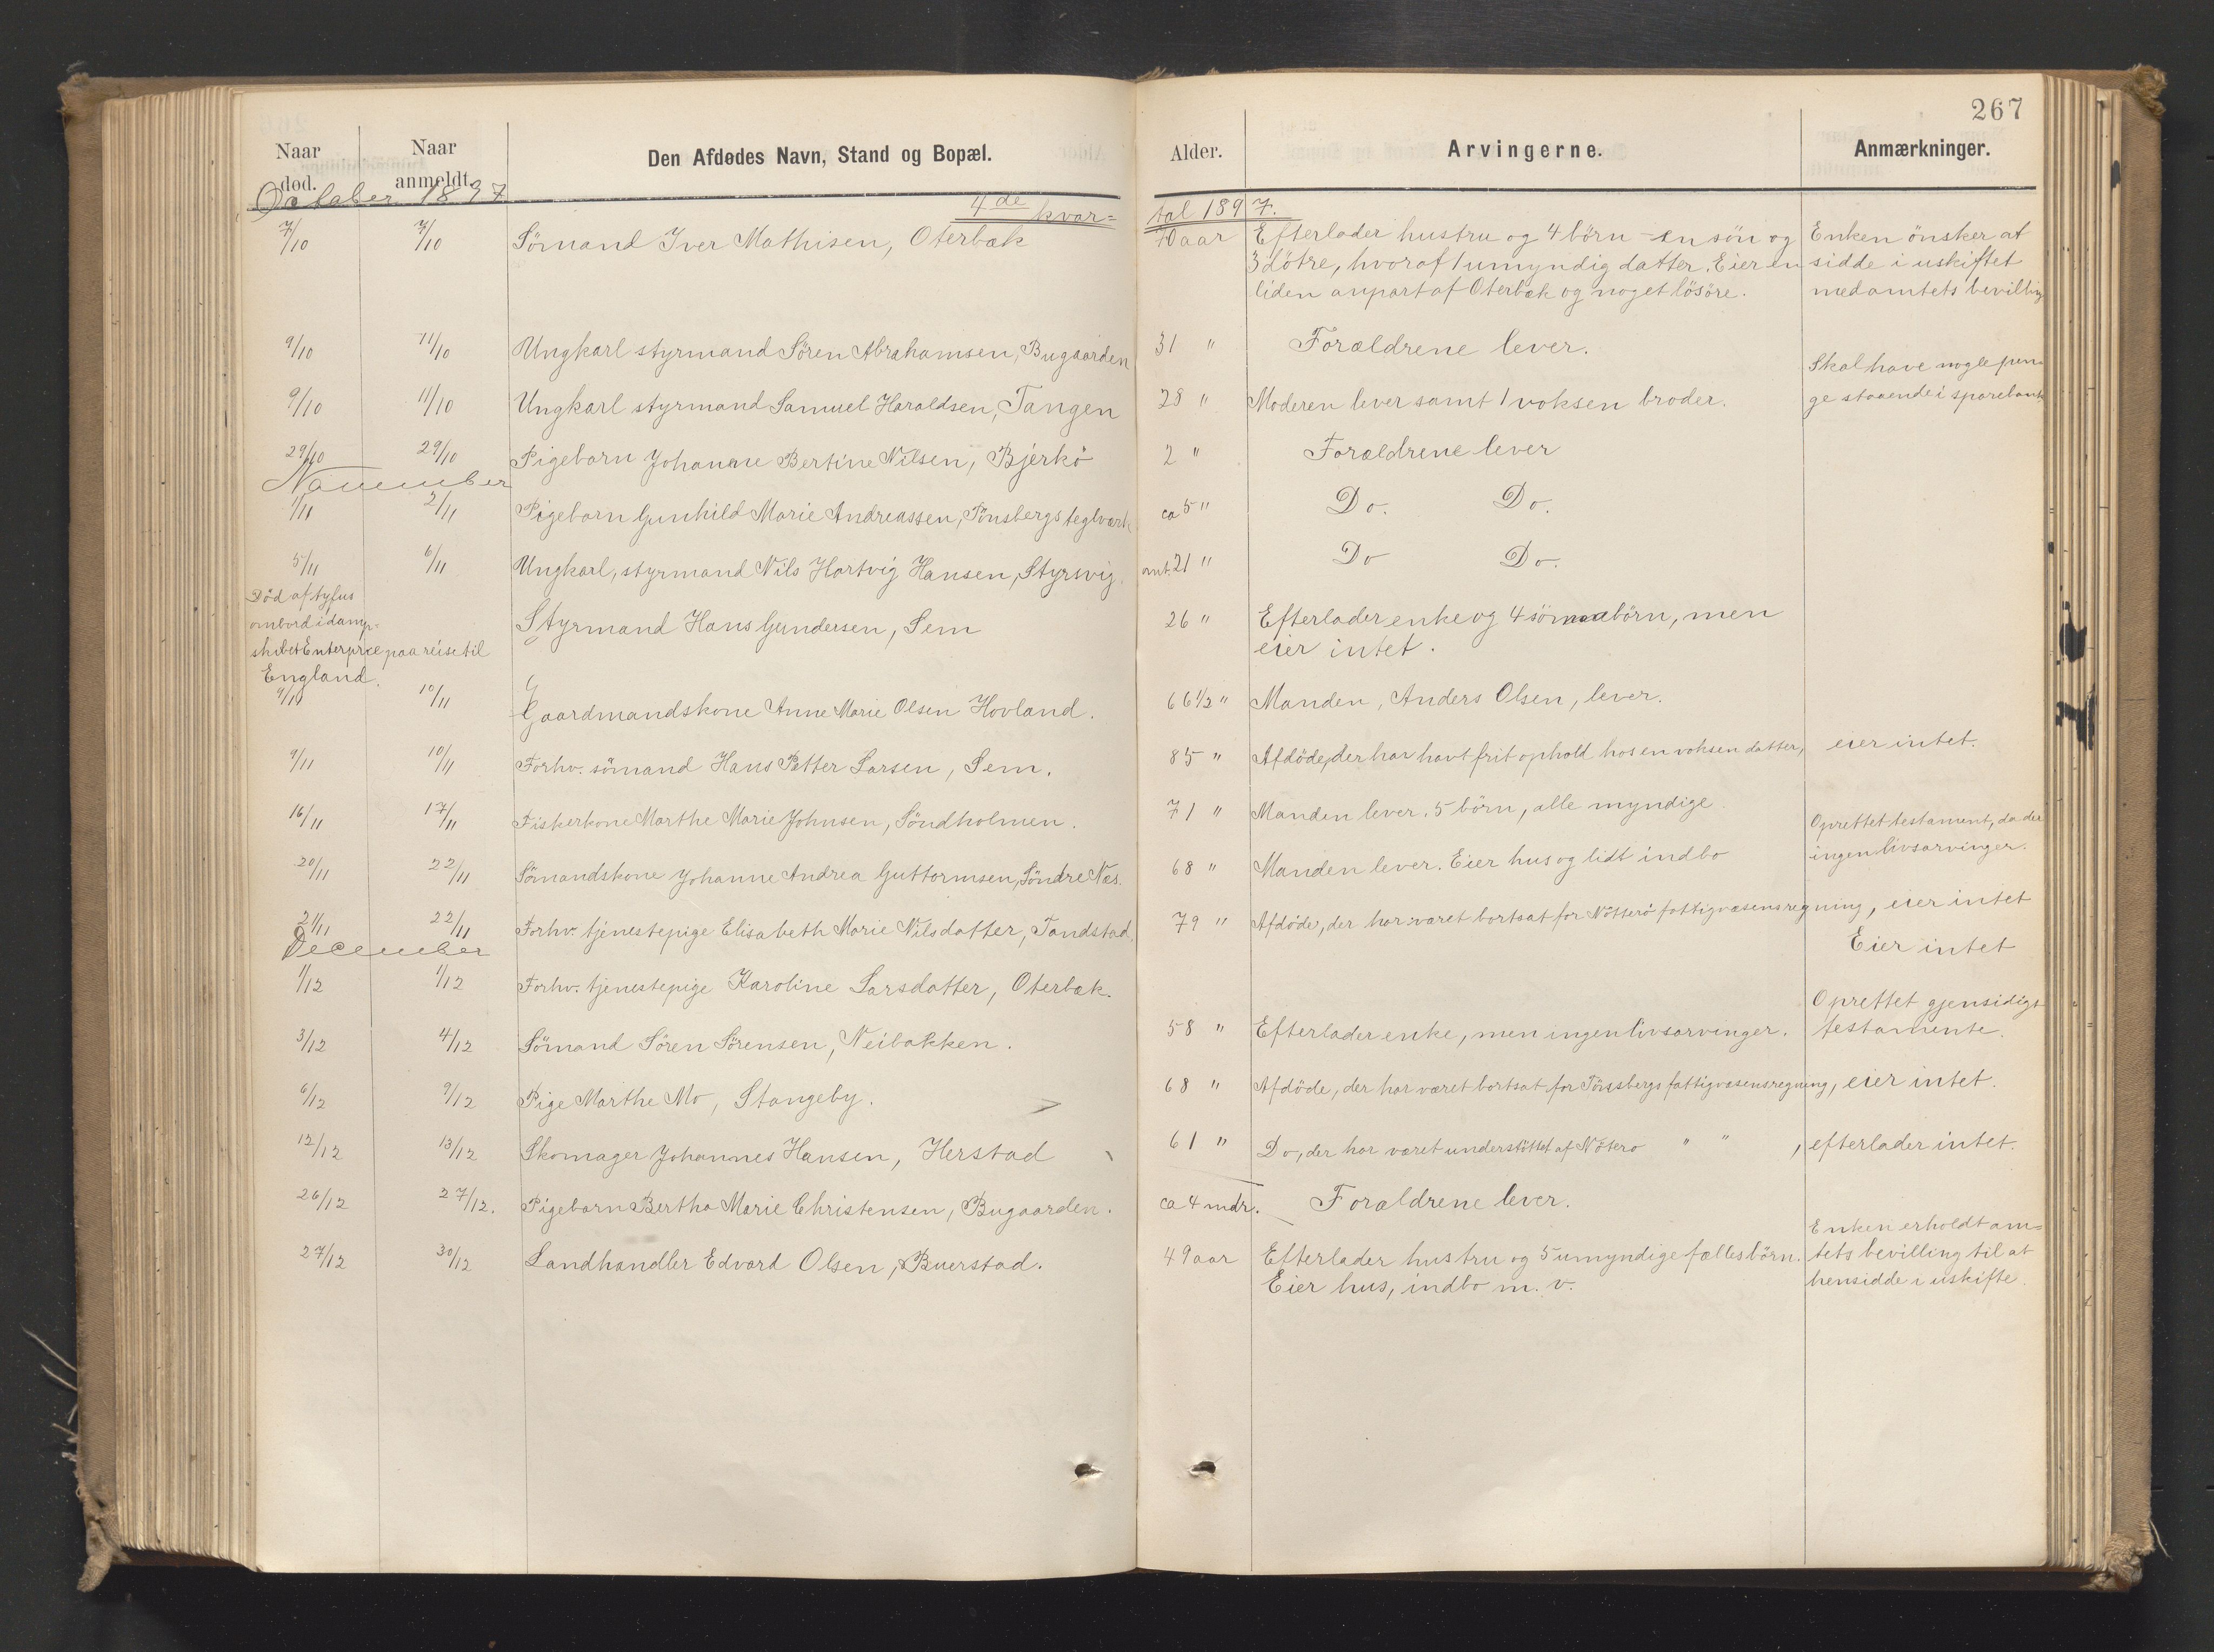 267
Naar død. Naar anmeldt. Den Afdødes Navn, Stand og Bopæl. Alder. Arvingerne. Anmærkninger.
October 1897
4de kvar= tal 1897.
7/10 7/10 Sömand Iver Mathisen, Oterbæk 70 aar Efterlader hustru og 4 börn - en sön og Enken önsker at
3 dötre, hvoraf 1 umyndig datter. Eier en sidde i uskiftet
liden anpart af Oterbæk og noget lösöre. med amtets bevilling
9/10 11/10 Ungkarl styrmand Sören Abrahamsen, Bugaarden 31 " Forældrene lever.
Skal have nogle pen=
9/10 11/10 Ungkarl styrmand Samuel Haraldsen, Tangen 28 " Moderen lever samt 1 voksen broder. ge staaende i sparebank
29/10 29/10 Pigebarn Johanne Bertine Nilsen, Bjerkö 2 " Forældrene lever
November
1/11 2/11 Pigebarn Gunhild Marie Andreassen, Tönsbergs teglværk ca 5 " Do. Do.
5/11 6/11 Ungkarl, styrmand Nils Hartvig Hansen, Styrsvig. omt. 21 " Do Do.
Död af tyfus
ombord i damp=
skibet Enterprice paa reise til
England.
Styrmand Hans Gundersen, Sem 26 " Efterlader enke og 4 sönnebörn, men
eier intet.
9/11 10/11 Gaardmandskone Anne Marie Olsen Hovland. 66 1/2 " Manden, Anders Olsen, lever.
9/11 10/11 Forhv. sömand Hans Petter Larsen, Sem. 85 " Afdöde, der har havt frit ophold hos en voksen datter, eier intet.
16/11 17/11 Fiskerkone Marthe Marie Johnsen, Söndholmen. 71 " Manden lever. 5 börn, alle myndige.
Oprettet testament, da der
20/11 22/11 Sömandskone Johanne Andrea Guttormsen, Söndre Næs. 68 " Manden lever. Eier hus og lidt indbo ingen livsarvinger.
21/11 22/11 Forhv. tjenestepige Elisabeth Marie Nilsdatter, Tandstad. 79 " Afdöde, der har været bortsat for Nötterö fattigvæsens regning, eier intet
December
Eier intet
1/12 1/12 Forhv. tjenestepige Karoline Larsdatter, Oterbæk.
Oprettet gjensidigt
3/12 4/12 Sömand Sören Sörensen, Neibakken. 58 " Efterlader enke, men ingen livsarvinger. testamente.
6/12 9/12 Pige Marthe Mo, Stangeby. 68 " Afdöde, der har været bortsat for Tönsbergs fattigvæsens regning, eier intet.
12/12 13/12 Skomager Johannes Hansen, Herstad 61 " Do, der har været understöttet af Nötero " " , efterlader intet.
26/12 27/12. Pigebarn Bertha Marie Christensen, Bugaarden. ca 4 mdr. Forældrene lever.
Enken erholdt am=
27/12 30/12 Landhandler Edvard Olsen, Buerstad. 49 aar Efterlader hustru og 5 umyndige fællesbörn. tets bevilling til at
Eier hus, indbo m. v. hensidde i uskifte.